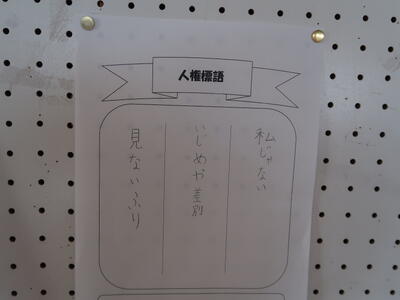 人権標語
私じゃない
いじめや差別
見ないふり